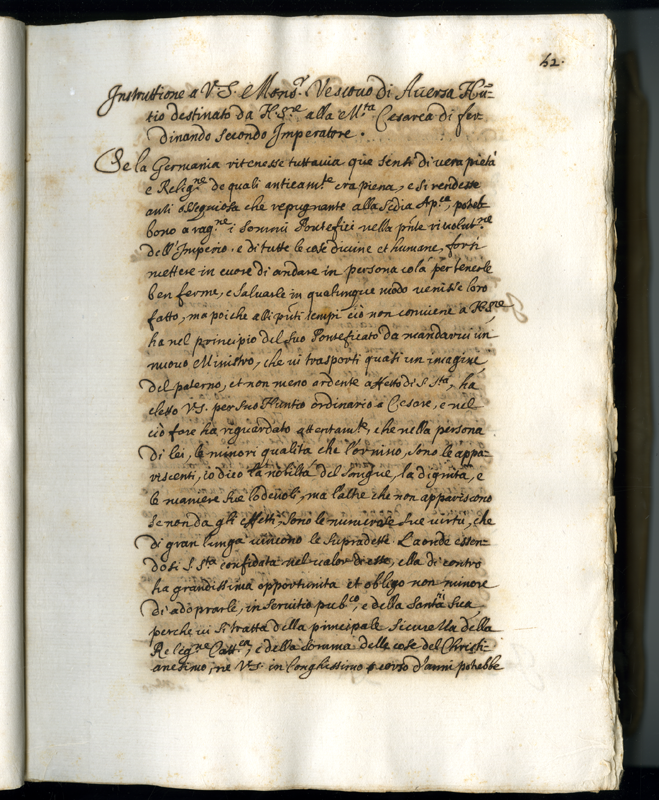 62.
Instruttione a V.S. Mons.r Vescovo di Aversa Nū-
tio destinato da N.S.re alla M.ta Cesarea di fer
dinando secondo Imperatore.
Se la Germania ritenesse tuttavia que sensi di vera pietà
e Relig.ne de quali anticam.te era piena, e si rendesse
anzi ossequiosa che repugnante alla Sedia Ap.ca, potreb
bono a rag.ne i sommi Pontefici nella p̃nte rivolut.ne
dell'Imperio, e di tutte le cose divine et humane, forsi
mettere in cuore di andare in persona colà per tenerle
ben ferme, e salvarle in qualunque modo venisse loro
fatto, ma poiche alli p̃nti tempi ciò non conviene a N.S.re
ha nel principio del suo Pontificato da mandarvi un
nuovo Ministro, che vi trasporti quasi un imagine
del paterno, et non meno ardente affetto di S. S.ta, ha
eletto V.S. per suo Nuntio ordinario a Cesare, e nel
ciò fare ha riguardato attentam.te, che nella persona
di lei, le minori qualità che l'ornino, sono le appa-
riscenti, io dico la nobiltà del sangue, la dignità, e
le maniere sue lodevoli, ma l'altre che non appariscono
se non da gli effetti, sono le numerose sue virtù, che
di gran lunga vincono le sopradette. Laonde essen-
dosi S. S.ta confidata nel valor di esse, ella di contro
ha grandissima opportunità et obligo non minore
di adoprarle, in servitio pub.co, e della Santà sua,
perche vi si tratta della principale sicurezza della
Relig.ne Catt.ca, e della somma delle cose del Christi-
anesimo, ne V.S. in longhissimo corso d'anni potrebbe